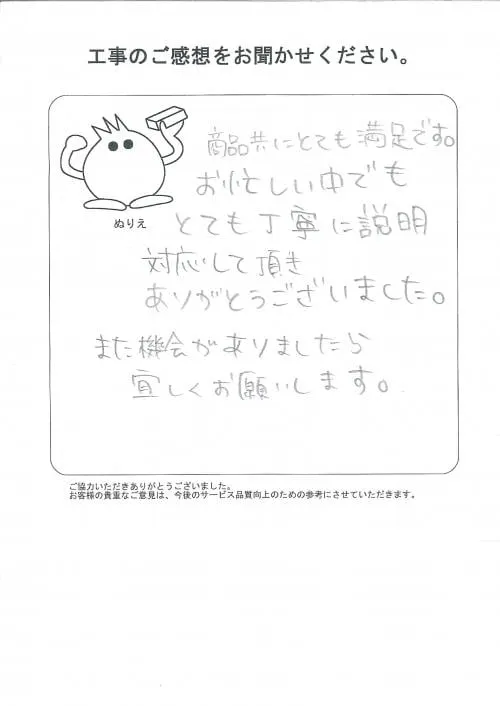 工事のご感想をお聞かせください。
商品共にとても満足です。
お忙しい中でも
とても丁寧に説明
対応して頂き
ありがとうございました。
また機会がありましたら
宜しくお願いします。
ぬりえ
ご協力いただきありがとうございました。
お客様の貴重なご意見は、今後のサービス品質向上のための参考にさせていただきます。